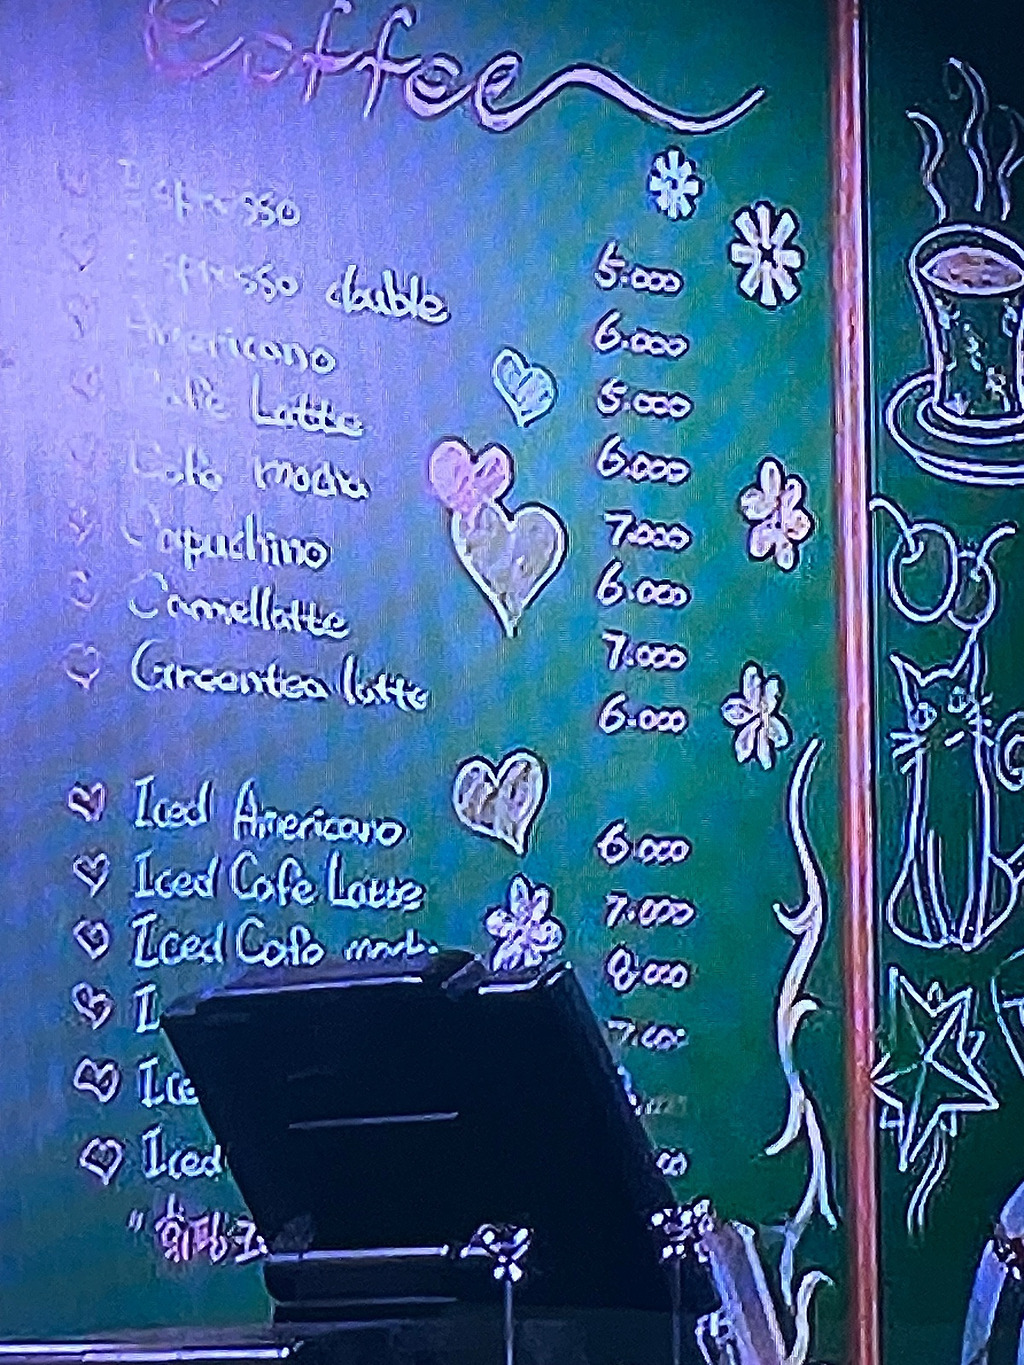 Coffee
Espresso 5.000
Espresso double 6.000
Americano 5.000
Cafe Latte 6.000
Cafe mocha 7.000
Capuchino 6.000
Camellatte 7.000
Greentea latte 6.000
Iced Americano 6.000
Iced Cafe Latte 7.000
Iced Cafe 8.000
Iced